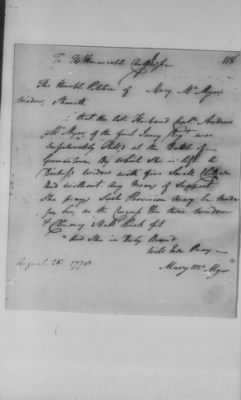 To The Honourable Congress 118
The Humble Petition of Mary Mc Myer
Widow, Sheweth
That the late Husband Capt. Andrew
Mc Myer, of the first Jersey Regt. was
unfortunately killed at the Battle of
Germantown By Which She is left a
Widow with five Small Children
And without any Means of Support
She prays Such Provision may be made
for her, as the Congress in their Wisdom
& Clemency Shall think fit
And She in Duty Bound
Will Ever Pray
August 26. 1778 Mary Mc Myer